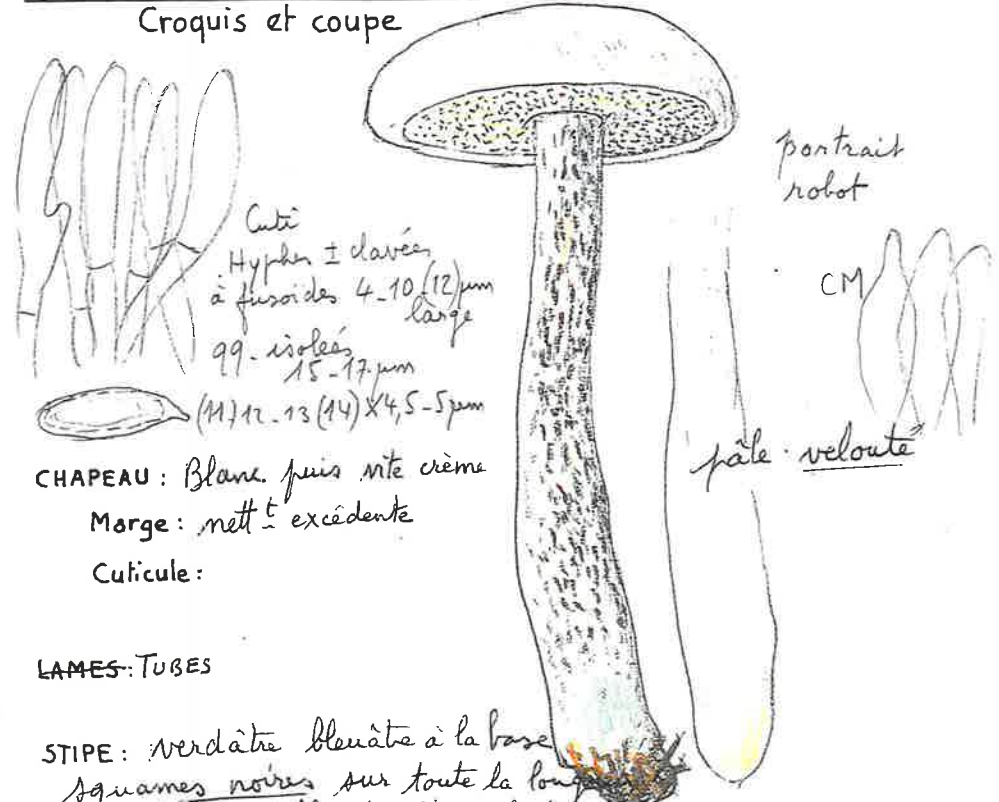 Croquis et coupe
portrait
robot
Cuti
Hyphes ± clavées
à fusoïdes 4-10-(12)µm
large
99- isolées
15-17 µm
CM
(11)12-13(14)X4,5-5µm
pâle. velouté
CHAPEAU : Blanc puis vite crème
Marge : nettt excédente
Cuticule :
LAMES : TUBES
STIPE : verdâtre bleuâtre à la base
squames noires sur toute la long